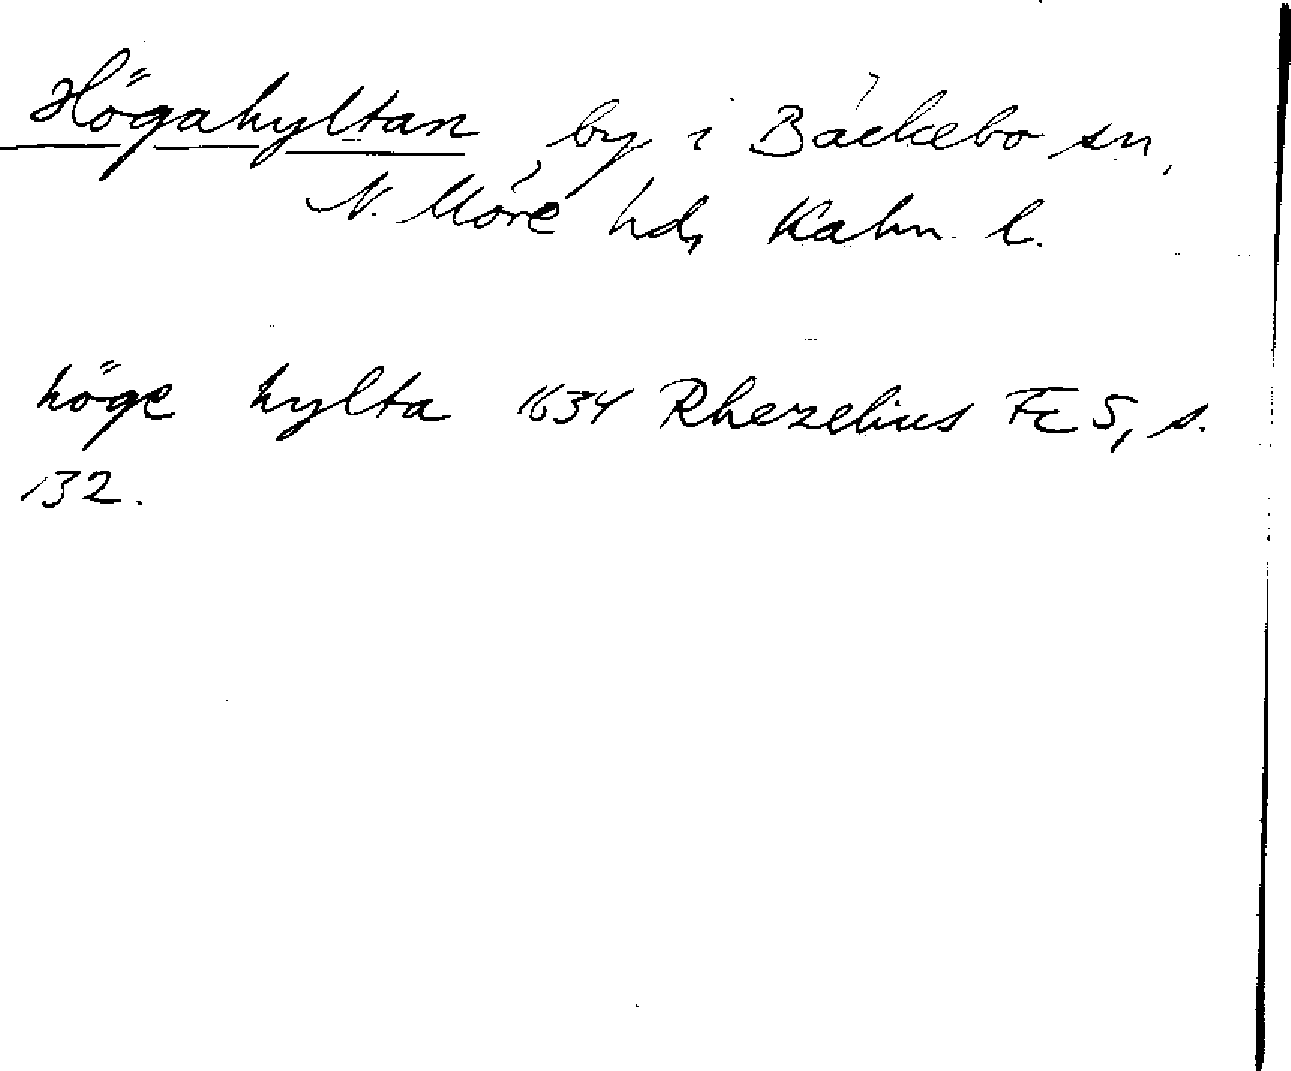 Högahyltan, by i Bäckebo sn,
N. Möre hd, Kalm. l.
höge hylta 1634 Rhezelius Fc 5, s.
132.